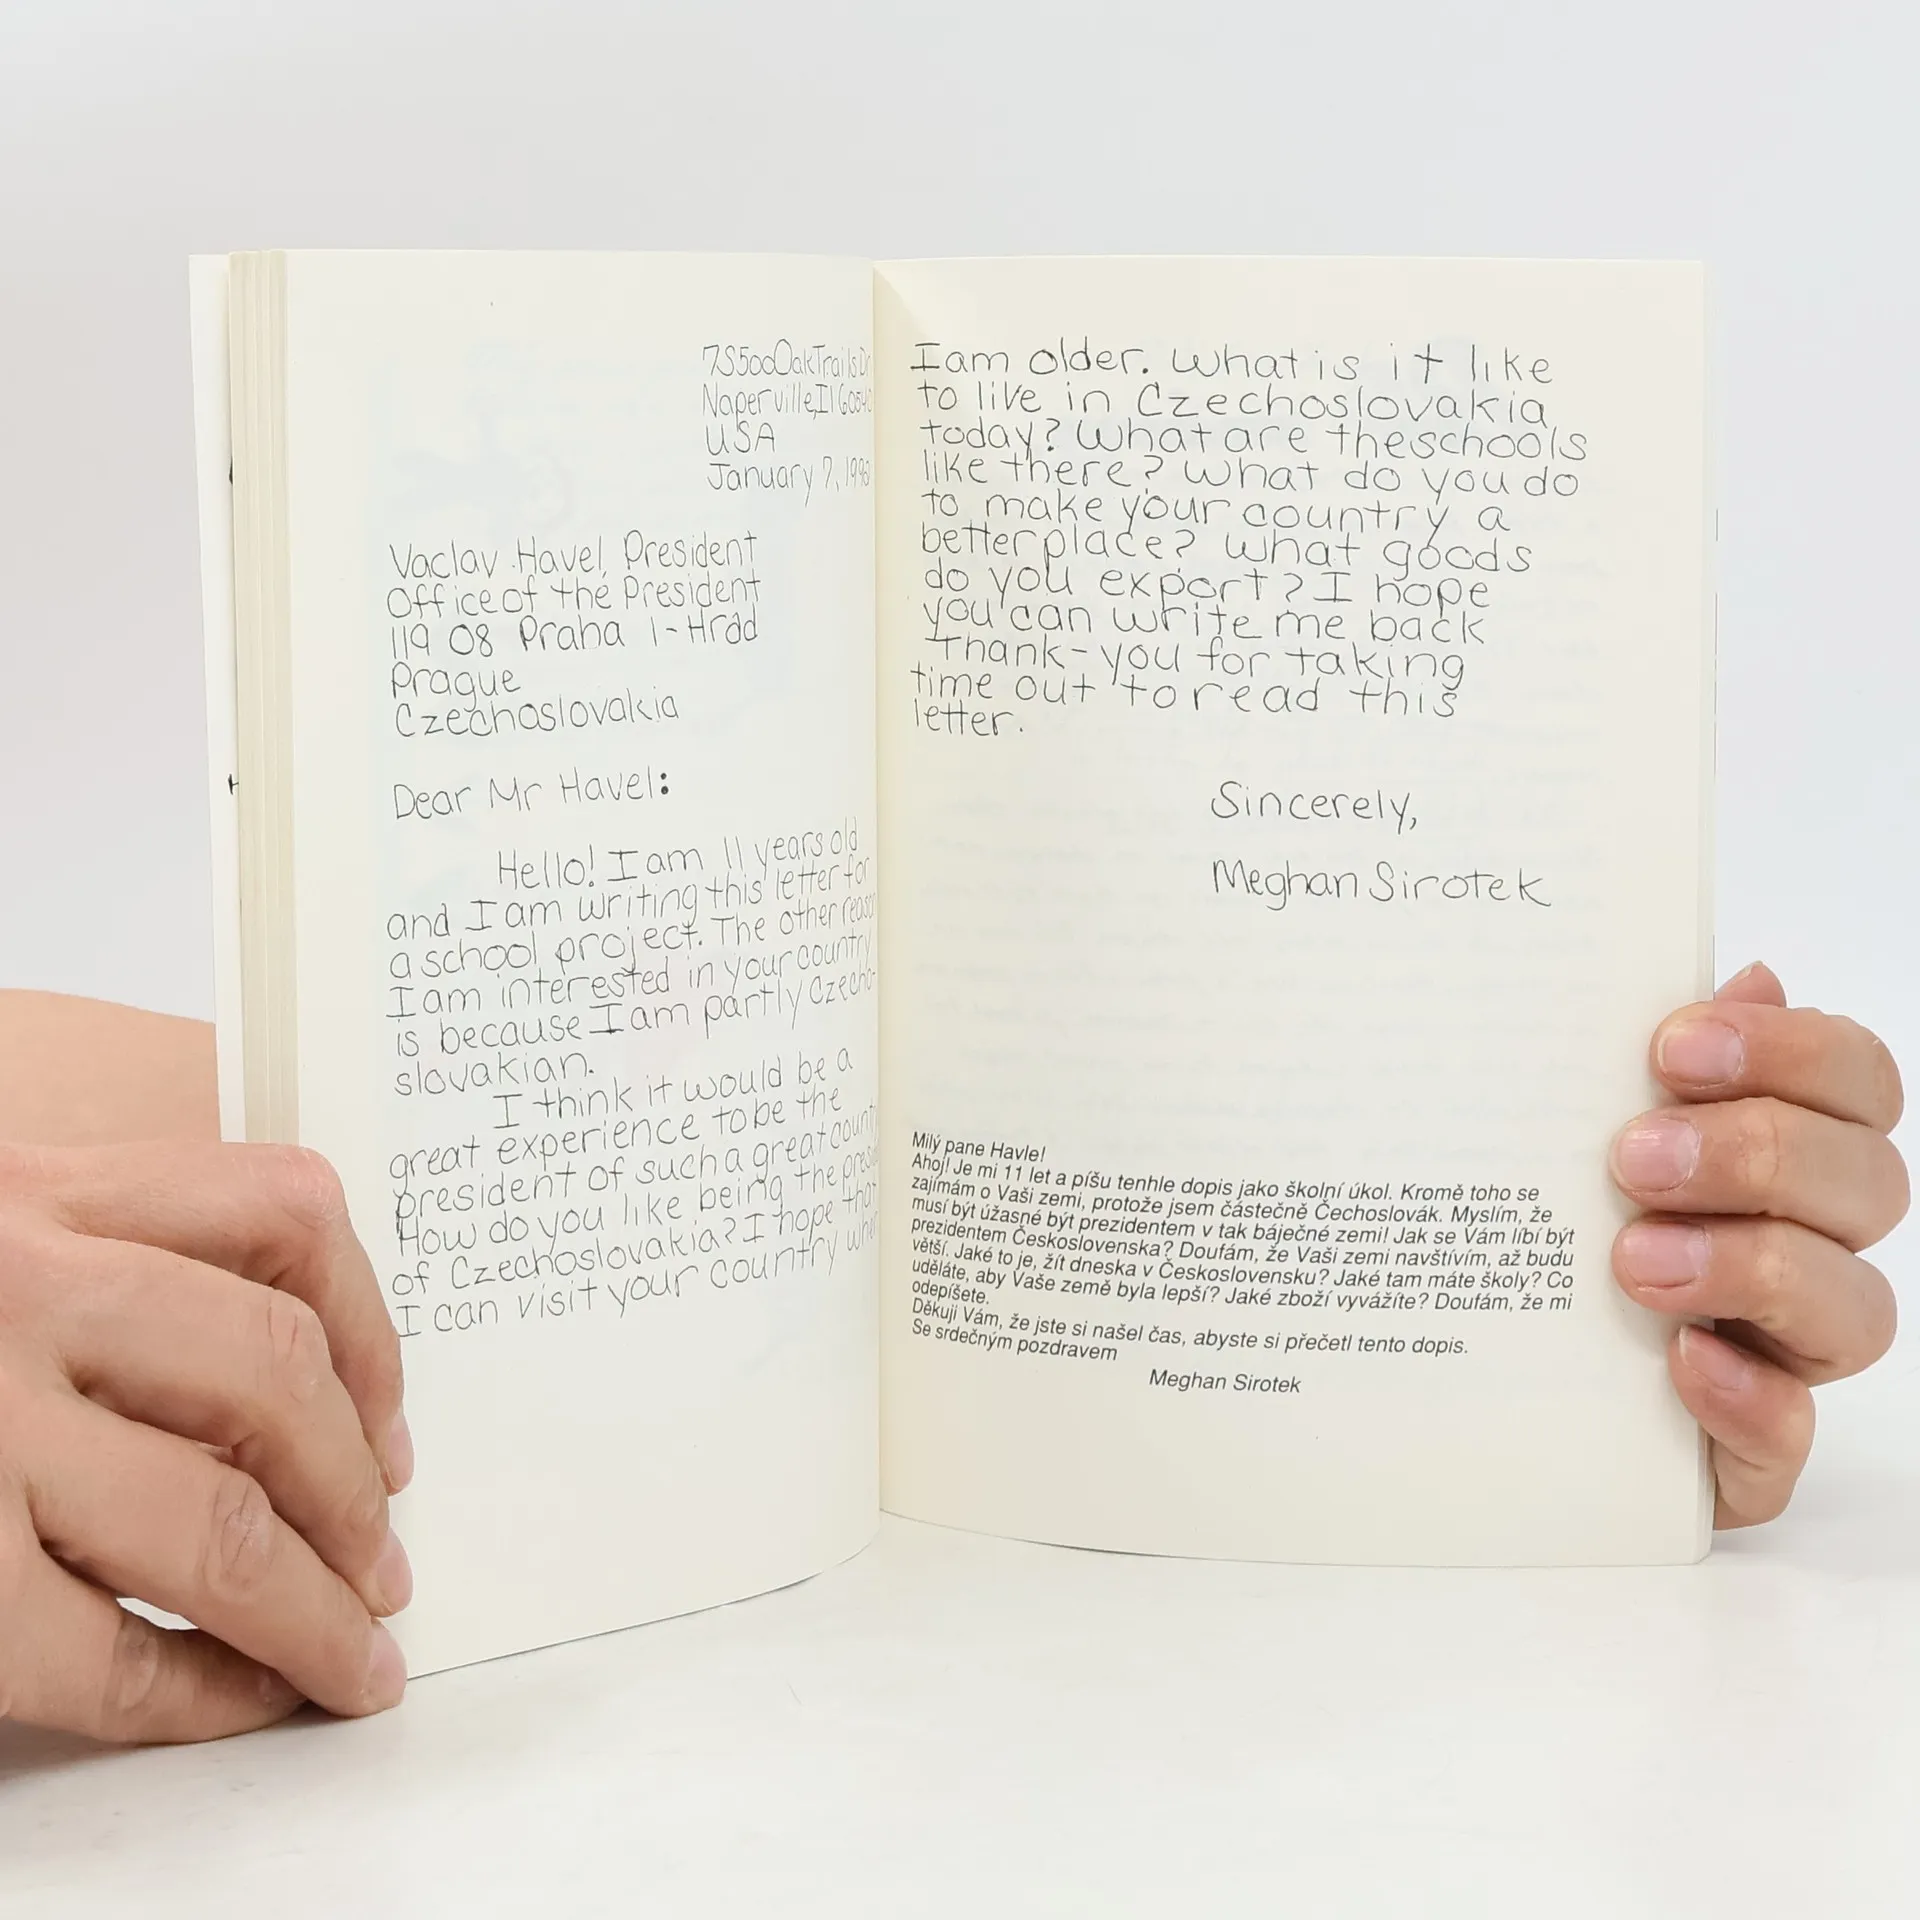 7S500 Oak Trails Dr
Naperville, Il 60540
USA
January 7, 1990
Vaclav Havel, President
Office of the President
119 08 Praha 1-Hrad
Prague
Czechoslovakia
Dear Mr Havel:
Hello! I am 11 years old
and I am writing this letter for
a school project. The other reason
I am interested in your country
is because I am partly Czecho-
slovakian.
I think it would be a
great experience to be the
president of such a great
How do you like being the
of Czechoslovakia? I hope that
I can visit your country when
I am older. What is it like
to live in Czechoslovakia
today? What are the schools
like there? What do you do
to make your country a
better place? What goods
do you export? I hope
you can write me back
Thank-you for taking
time out to read this
letter.
Sincerely,
Meghan Sirotek
Milý pane Havle!
Ahoj! Je mi 11 let a píšu tenhle dopis jako školní úkol. Kromě toho se
zajímám o Vaši zemi, protože jsem částečně Čechoslovák. Myslím, že
musí být úžasné být prezidentem v tak báječné zemi! Jak se Vám líbí být
prezidentem Československa? Doufám, že Vaši zemi navštívím, až budu
větší. Jaké to je, žít dneska v Československu? Jaké tam máte školy? Co
uděláte, aby Vaše země byla lepší? Jaké zboží vyvážíte? Doufám, že mi
odepíšete.
Děkuji Vám, že jste si našel čas, abyste si přečetl tento dopis.
Se srdečným pozdravem
Meghan Sirotek